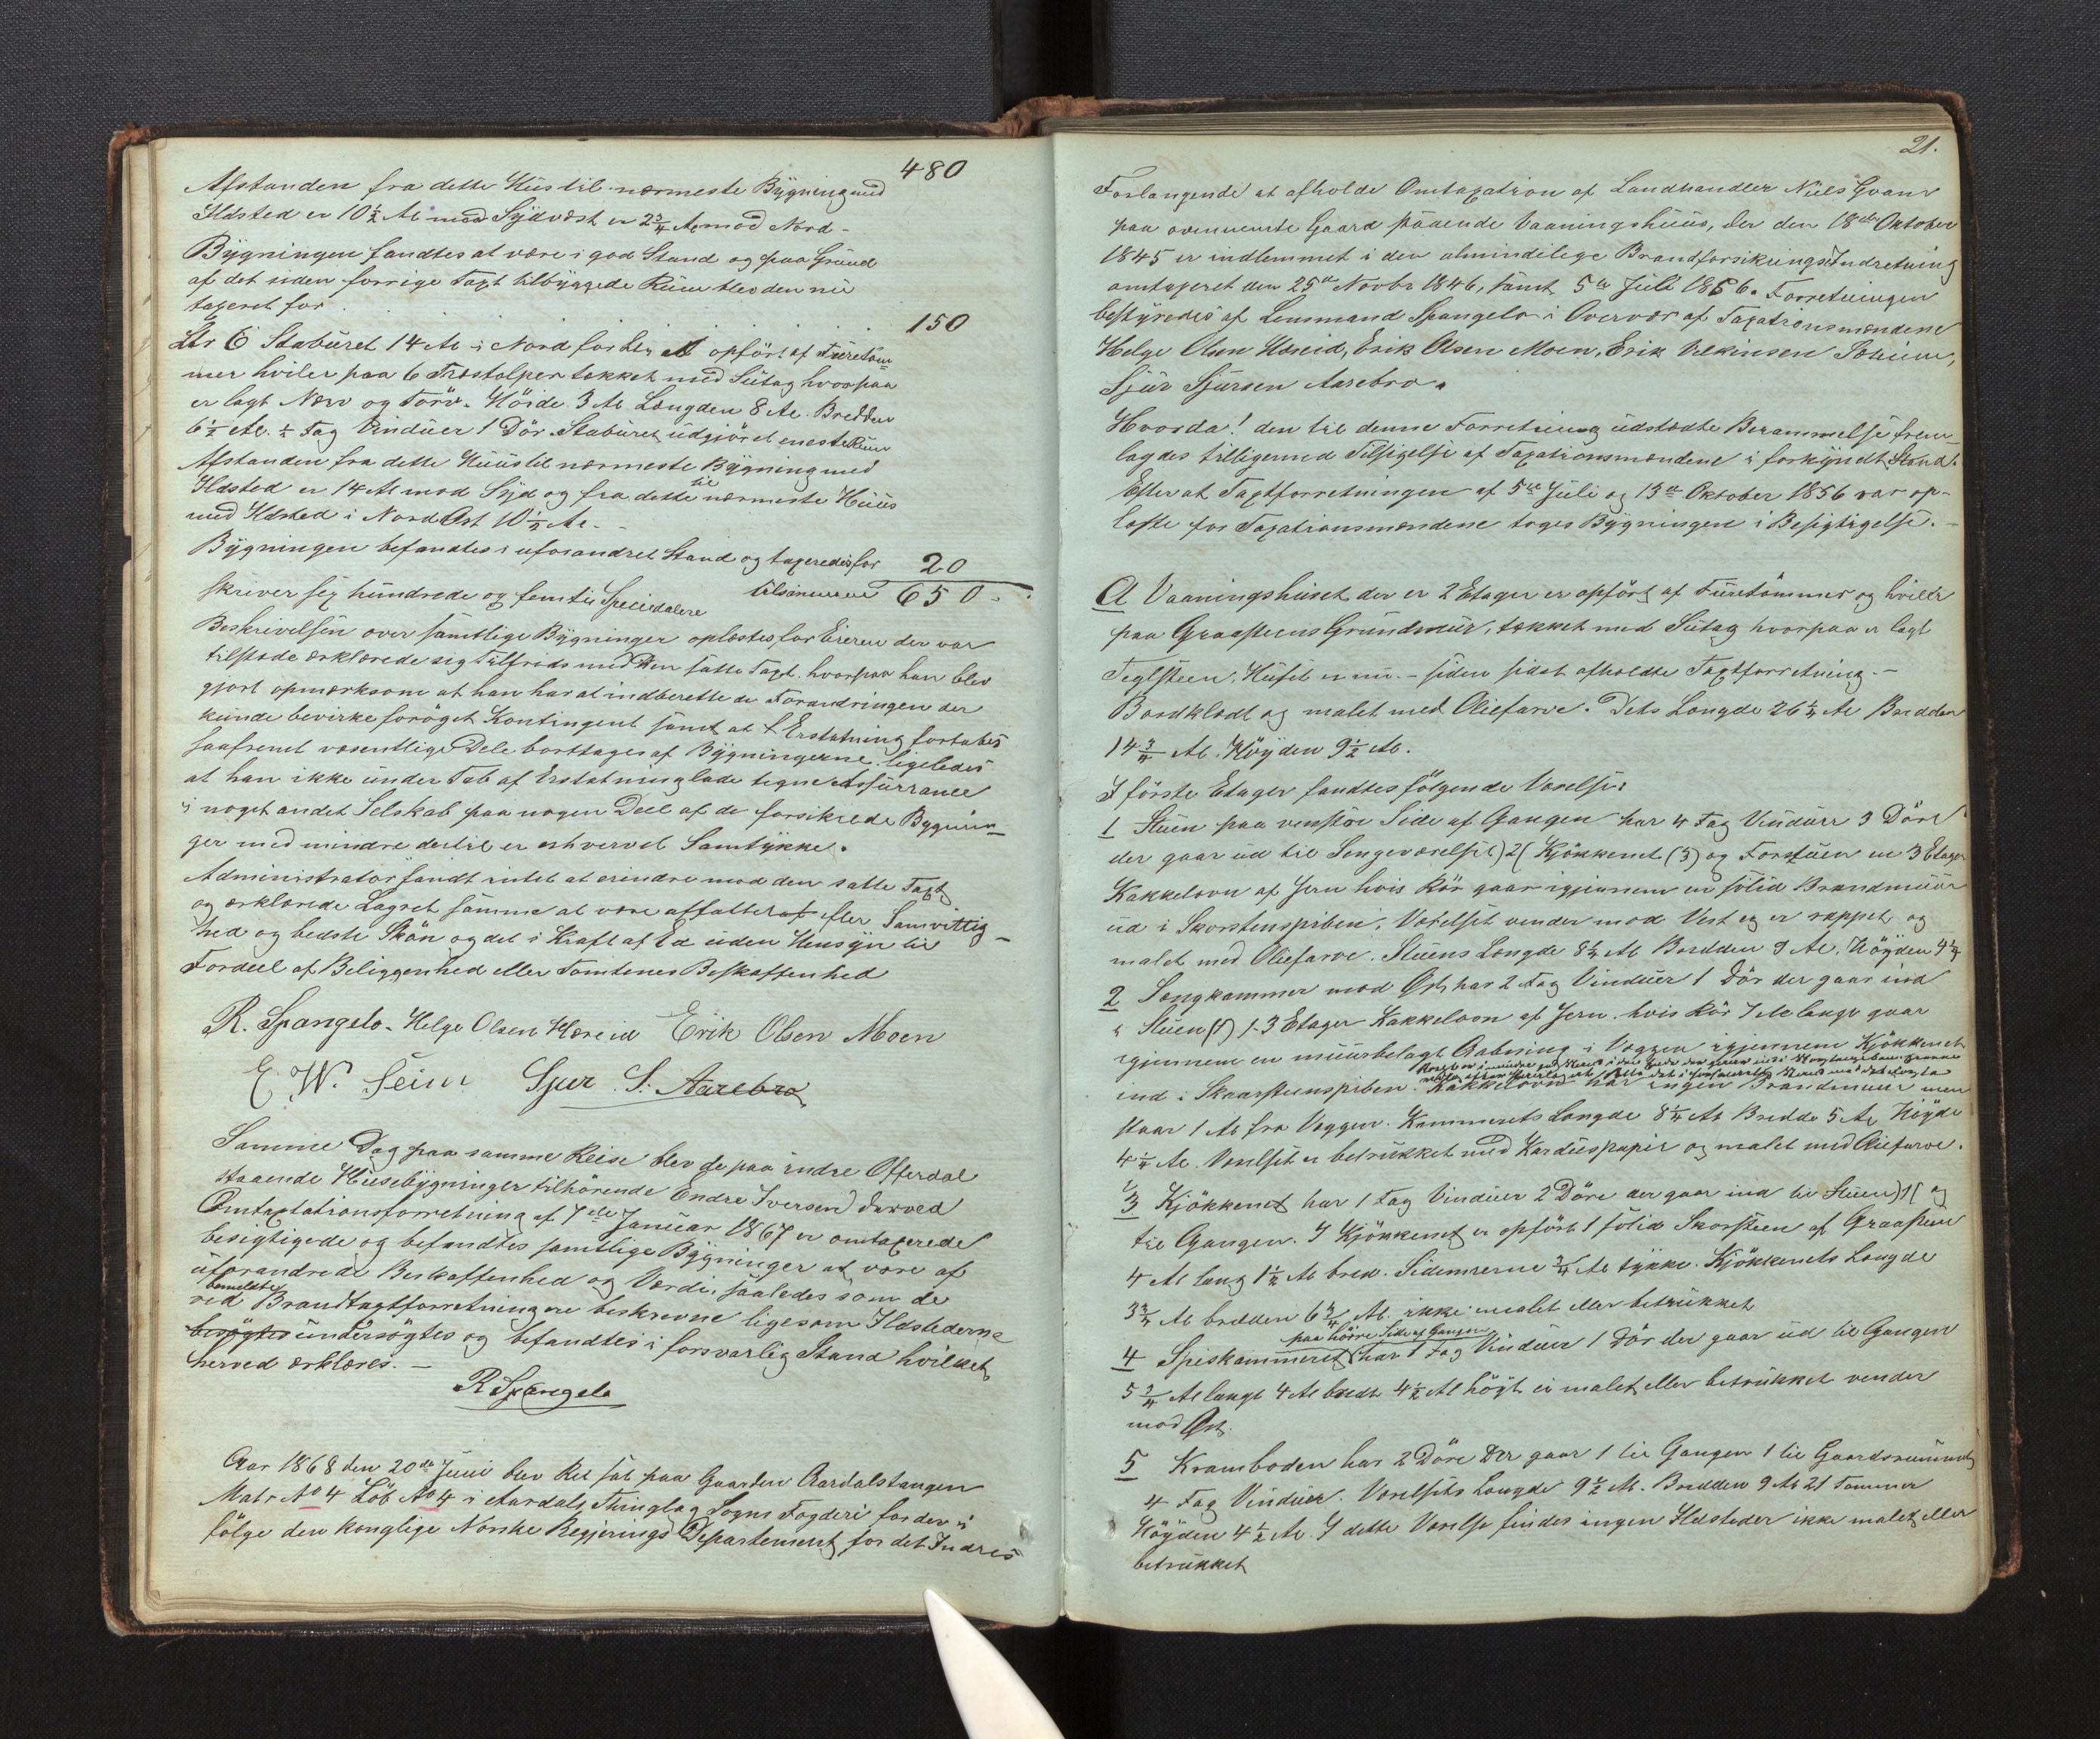 480
Afstanden fra dette Huus til nærmeste Bygning med
Ildsted er 10 1/2 Al mod Sydvæst er 2 3/4 Al mod Nord -
Bygningen fandtes at være i god Stand og paa Grund
af det siden forrige Taxt tilbyggede Rum blev den nu
taxeret for
150
Ltr C Staburet 14 Al i Nord for Ltr A opført af Furetøm-
mer hviler paa 6 Træstolper tækket med Sutag hvorpaa
er lagt Næver og Törv. Höide 3 Al Længden 8 Al. Bredden
6 1/2 Al. 1/2 Fag Vinduer 1 Dör. Staburet udgjör et eneste Rum
Afstanden fra dette Huus til nærmeste Bygning med
Ildsted er 14 Al mod Syd og fra dette til nærmeste Huus
med Ildsted i Nord Øst 10 1/2 Al. -
Bygningen befandtes i uforandret Stand og taxeredes for 20
tilsammen 650 -
skriver sex hundrede og femti Speciedalere
Beskrivelsen over samtlige Bygninger oplæstes for Eieren der var
tilstæde erklærede sig tilfreds med den satte Taxt. hvorpaa han blev
gjort opmærksom at han har at indberette de Forandringer der
kunde bevirke forøget Kontingent samt at Erstatning fortabes
saafremt væsentlige Dele borttages af Bygningerne. ligeledes
at han ikke under Tab af Erstatning lade tegne Assurrance
i noget andet Selskab paa nogen Deel af de forsikrede Bygnin-
ger med mindre dertil er erhvervet Samtykke.
Administrator fandt intet at erindre mod den satte Taxt
og erklærede Lagret samme at være affattet af efter Samvittig-
hed og bedste Skön og det i Kraft af Ed uden Hensyn til
Fordeel af Beliggenhed eller Tomtenes Beskaffenhed
R. Spangelo - Helge Olsen Hæreid Erik Olsen Moen
E. W. Seim Sjur S. Aarebro
Samme Dag paa samme Reise blev de paa indre Offerdal
staaende Huusebygninger tilhörende Endre Iversen der ved
Omtaxtationsforretning af 7de Januar 1867 er omtaxerede
besigtigede og befandtes samtlige Bygninger at være af
uforandrede Beskaffenhed og Værdi, saaledes som de
bemeldte
ved Brandtaxtforretningere beskrevne ligesom Ildstederne
besøgtes undersøgtes og befandtes i forsvarlig Stand hvilket
herved erklæres. -
R Spangelo
Aar 1868 den 20de Juni blev Ret sat paa Gaarden Aardalstangen
Matr No 4 Löb No 4 i Aardals Thinglag Sogns Fogderi for der i
fölge den kongelige Norske Regjerings Departement for det Indres
21.
Forlangende at afholde Omtaxation af Landhandler Niels Qvam
paa ovennævnte Gaard staaende Vaaningshuus, der den 18de Oktober
1845 er indlemmet i den almindelige Brandforsikrings Indretning
omtaxeret den 25de Novbr 1846, samt 5te Juli 1856. Forretningen
bestyredes af Lensmand Spangelo i Overvær af Taxationsmændene
Helge Olsen Hæreid, Erik Olsen Moen, Erik Vilkinsen Seim,
Sjur Sjursen Aarebro.
Hvorda! den til denne Forretning udstædte Berammelse frem-
lagdes tilligemed Tilsigelse af Taxationsmændene i forkyndt Stand.
Efter at Taxtforretningen af 5te Juli og 13de Oktober 1856 var op-
læste for Taxationsmændene toges Bygningen i Besigtigelse. -
A Vaaningshuset der er 2 Etager er opfört af Furetömmer og hviler
paa Graasteens Grundmuur, tækket med Sutag hvorpaa er lagt
Teglsteen. Huset er nu - siden sidst afholdte Taxtforretning -
Bordklædt og malet med Oliefarve. Dets Længde 26 1/4 Al Bredden
14 3/4 Al. Höyden 9 1/2 Al.
I förste Etager fandtes fölgende Værelser
1 Stuen paa venstre Side af Gangen har 4 Fag Vinduer 3 Döre
der gaar ud til Sengeværelset) 2( Kjökkenet (3) og Forstuen en 3 Etager
Kakkelovn af Jern hvis Rör gaar igjennem en solid Brandmuur
ud i Skorstenspiben. Værelset vender mod Vest og er rappet og
malet med Oliefarve. Stuens Længde 8 1/4 Al Bredden 9 Al. Höyden 4 1/4
2 Sengkammer mod Øst har 2 Fag Vinduer 1 Dör der gaar ind
i Stuen (1) 1-3 Etager Kakkelovn af Jern. hvis Rör 7 Al lange gaar
igjennem en muurbelagt Aabning i Væggen igjennem Kjökkenet
ind i Skaarsteenspiben. Kakkelovnen har ingen Brandmuur men
staar 1 Al fra Væggen. Kammerets Længde 8 1/4 Al Bredde 5 Al Höyde
4 1/4 Al. Værelset er betrukket med Karduspapir og malet med Oliefarve.
3 Kjökkenet har 1 Fag Vinduer 2 Döre der gaar ind til Stuen) 1( og
til Gangen. I Kjökkenet er opfört 1 solid Skorsteen af Graasteen
4 Al lang 1 1/2 Al bred. Sidemurene 3/4 Al tykke. Kjökkenets Længde
3 3/4 Al bredden 6 3/4 Al. ikke malet eller betrukket
paa höire Side af Gangen
4 Spiskammeret har 1 Fag Vinduer 1 Dör der gaar ud til Gangen
5 3/4 Al langt 4 Al bredt 4 1/2 Al högt ei malet eller betrukket vender
mod Øst.
5 Kramboden har 2 Döre Der gaar 1 til Gangen 1 til Gaardsrummet
4 Fag Vinduer. Værelsets Længde 9 1/2 Al. Bredden 9 Al 21 Tommer
Höyden 4 1/2 Al. I dette Værelse findes ingen Ildsteder ikke malet eller
betrukket